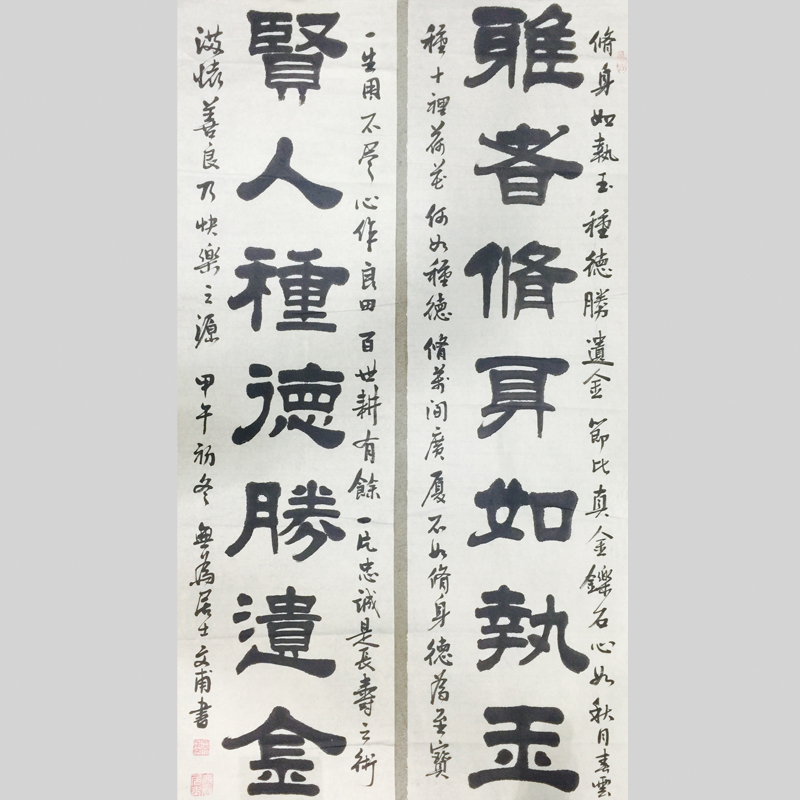 脩身如執玉 種德勝遺金 節比真金鑠石 心如秋月春雲
雅者脩身如執玉
種十裡荷花何如種德 脩萬间廣厦不如脩身 德為至寶
一生用不尽 心作良田百世耕有餘 一片忠誠是長壽之術
賢人種德勝遺金
滿懷善良乃快樂之源 甲午初冬 無為居士文甫書